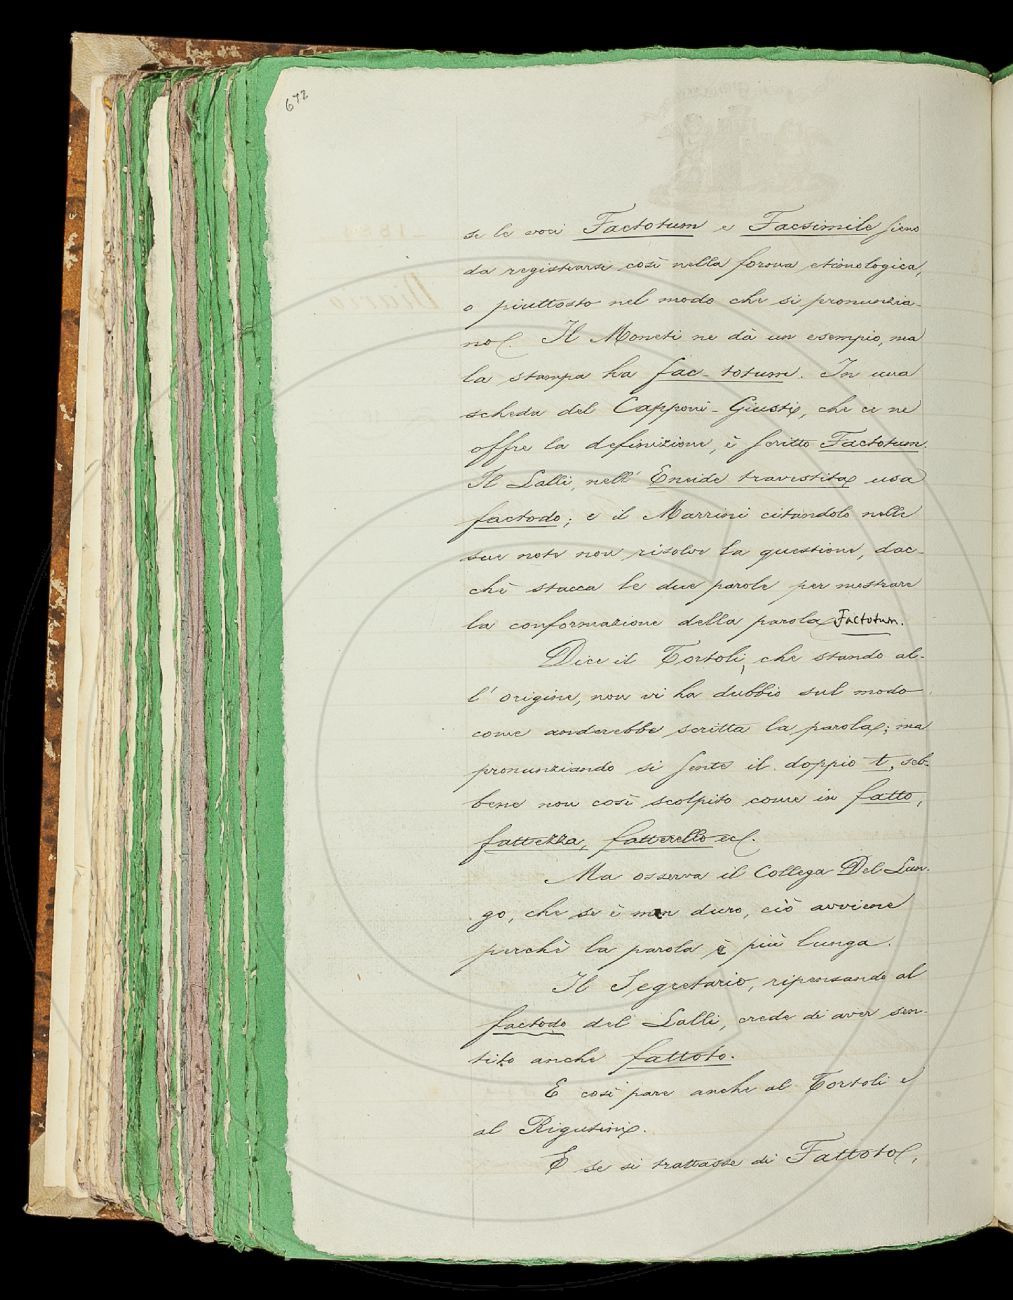 672
se le voci Factotum e Facsimile sieno
da registrarsi così nella forma etimologica,
o piuttosto nel modo che si pronunzia-
no. Il Moneti ne dà un esempio, ma
la stampa ha fac-totum. In una
scheda del Capponi-Giusti, che ce ne
offre la definizione, è scritto Factotum.
Il Lalli, nell'Eneide travestita usa
factodo; e il Marrini citandolo nelle
sue note non risolve la questione, dac-
chè stacca le due parole per mostrare
la conformazione della parola Factotum.
Dice il Tortoli, che stando al-
l'origine, non vi ha dubbio sul modo
come anderebbe scritta la parola; ma
pronunziando si sente il doppio t, seb-
bene non così scolpito come in fatto,
fattezza, fatterello ec.
Ma osserva il Collega Del Lun-
go, che se è men duro, ciò avviene
perchè la parola è più lunga.
Il Segretario, ripensando al
factodo del Lalli, crede di aver sen-
tito anche fattoto.
E così pare anche al Tortoli e
al Rigutini.
E se si trattasse di Fattoto,
Diario